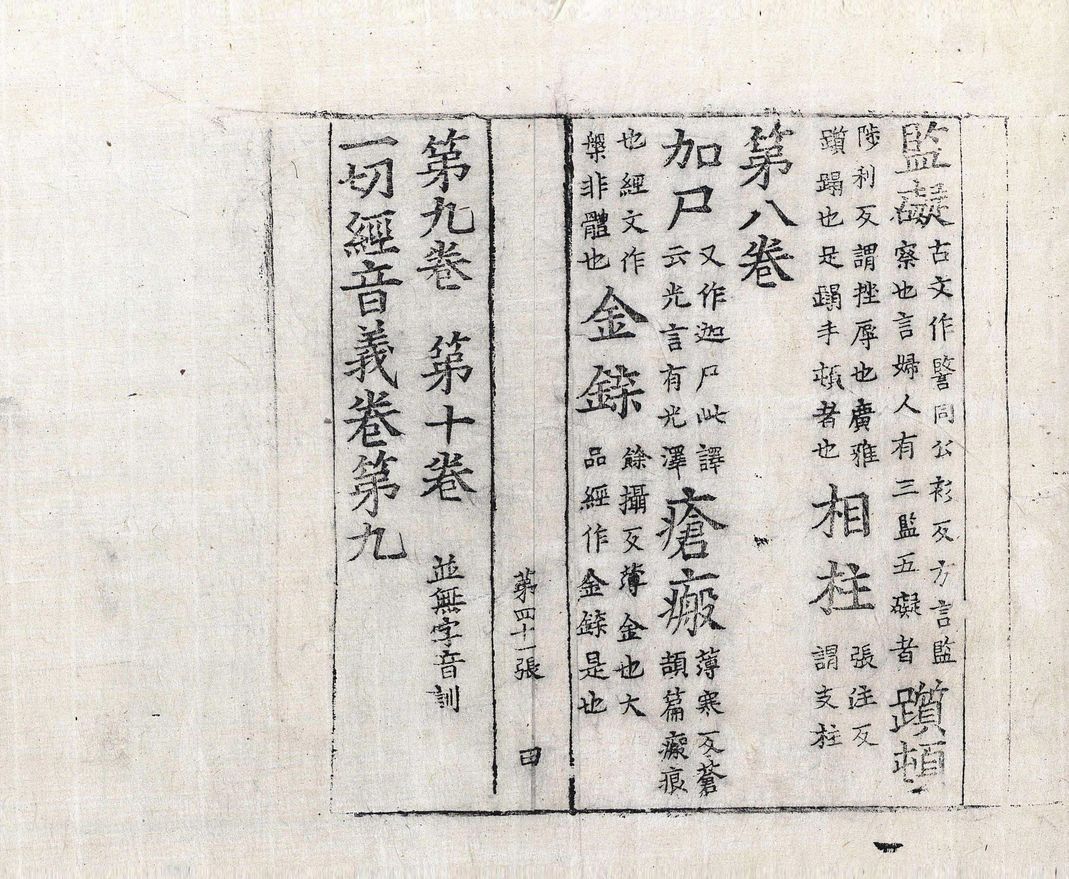 監礙古文作同公衫反方言監察也言婦人有三監五礙者躓頓
陟利反謂挫辱也廣雅躓蹋也足蹋手頓者也相柱張注反謂支柱
第八卷
加尸又作迦尸此譯云光言有光澤瘡瘢薄寒反蒼頡篇瘢痕
也經文作槃非體也金鍱餘攝反薄金也大品經作金鍱是也
第四十一張 田
第九卷 第十卷 並無字音訓
一切經音義卷第九